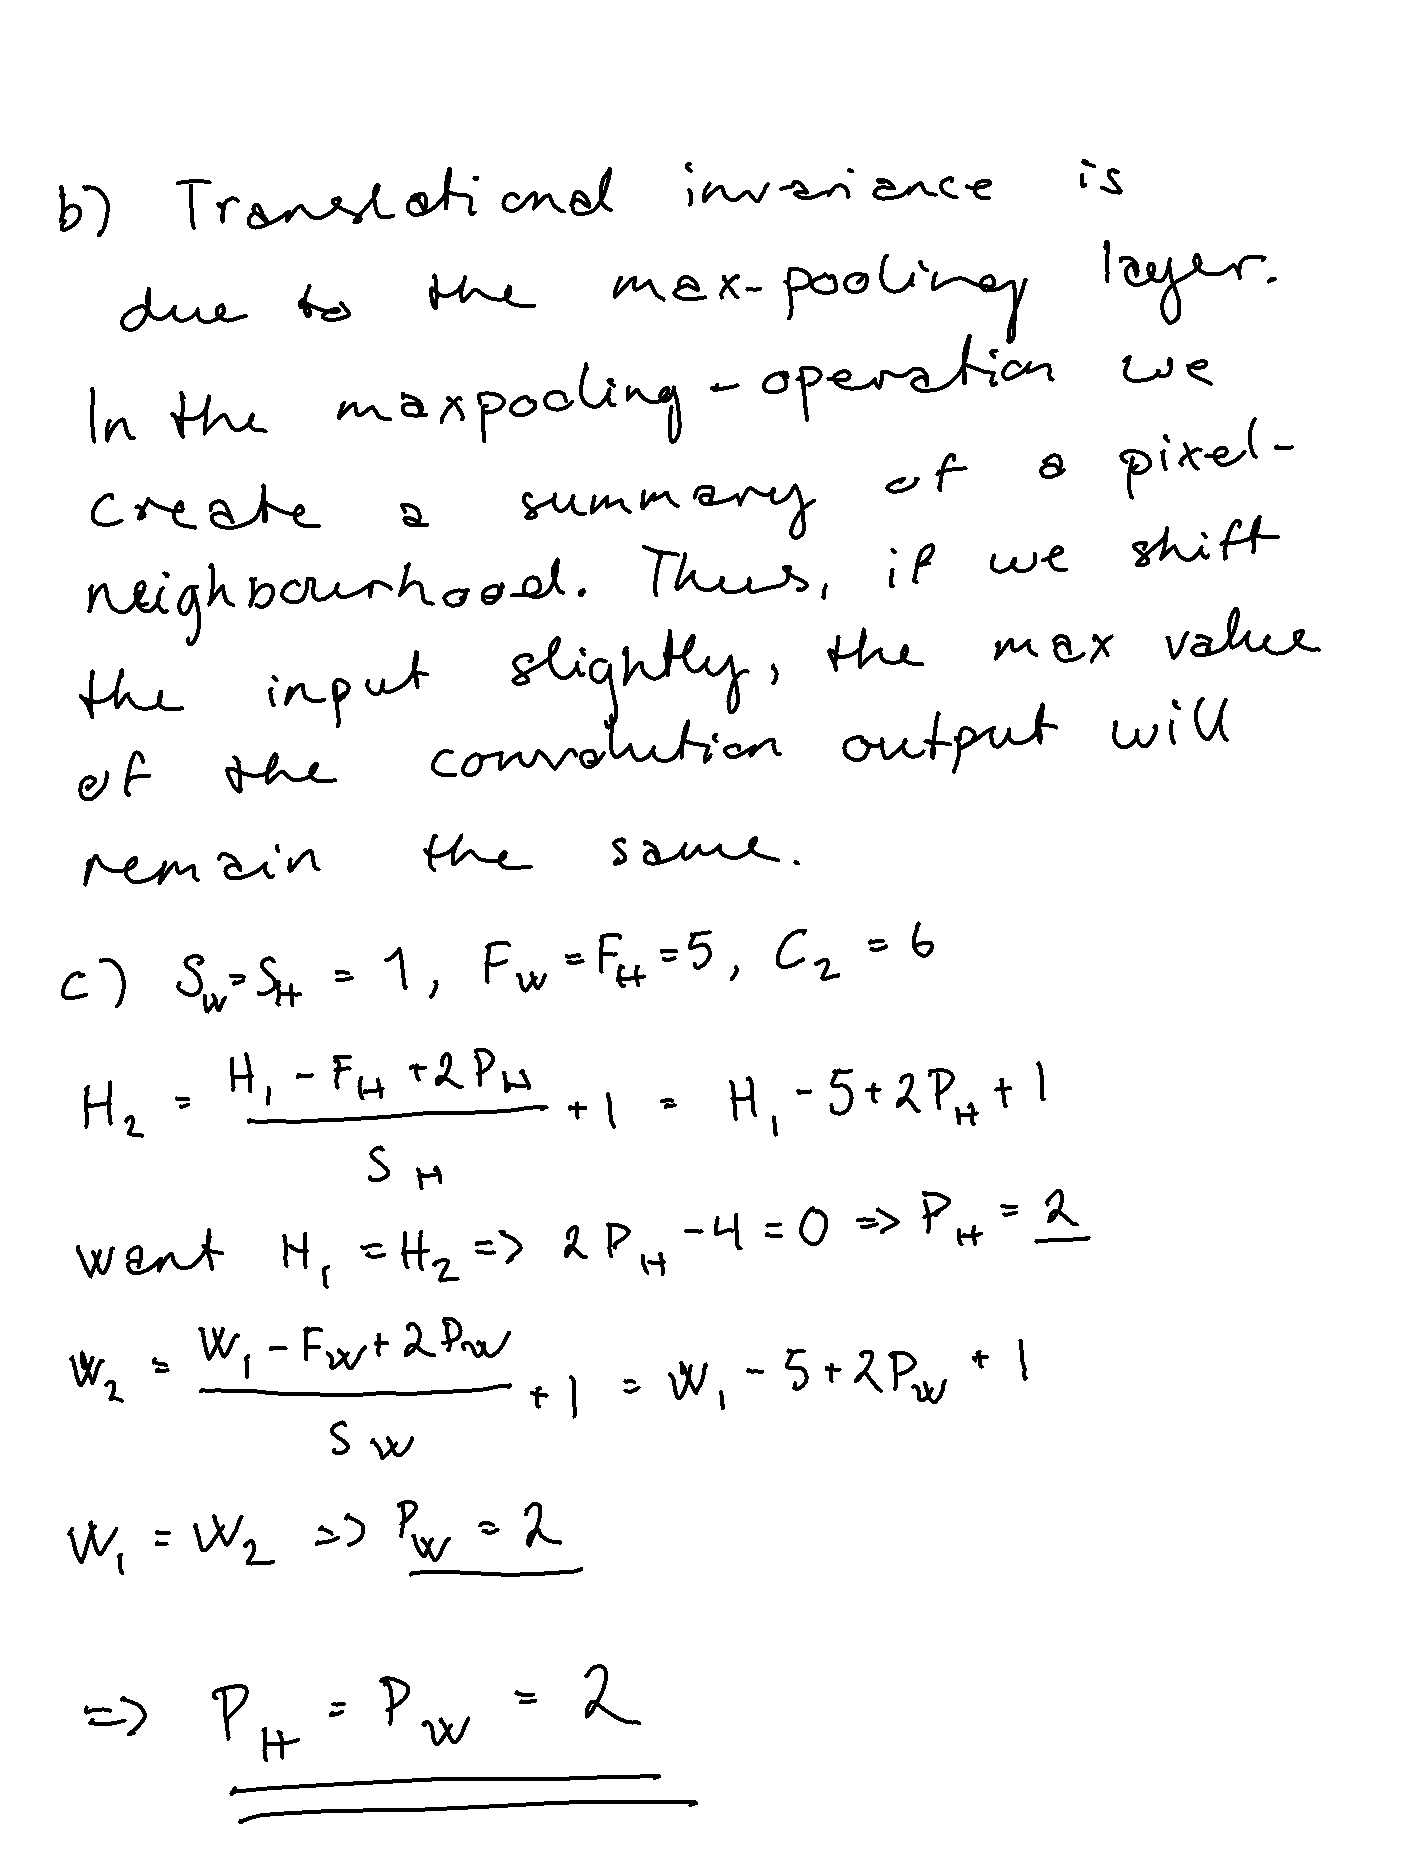 b) Translational invariance is
due to the max-pooling layer.
In the maxpooling-operation we
create a summary of a pixel-
neighbourhood. Thus, if we shift
the input slightly, the max value
of the convolution output will
remain the same.
c) S_W = S_H = 1, F_W = F_H = 5, C_2 = 6
H_2 = (H_1 - F_H + 2P_H) / S_H + 1 = H_1 - 5 + 2P_H + 1
want H_1 = H_2 => 2P_H - 4 = 0 => P_H = 2
W_2 = (W_1 - F_W + 2P_W) / S_W + 1 = W_1 - 5 + 2P_W + 1
W_1 = W_2 => P_W = 2
=> P_H = P_W = 2